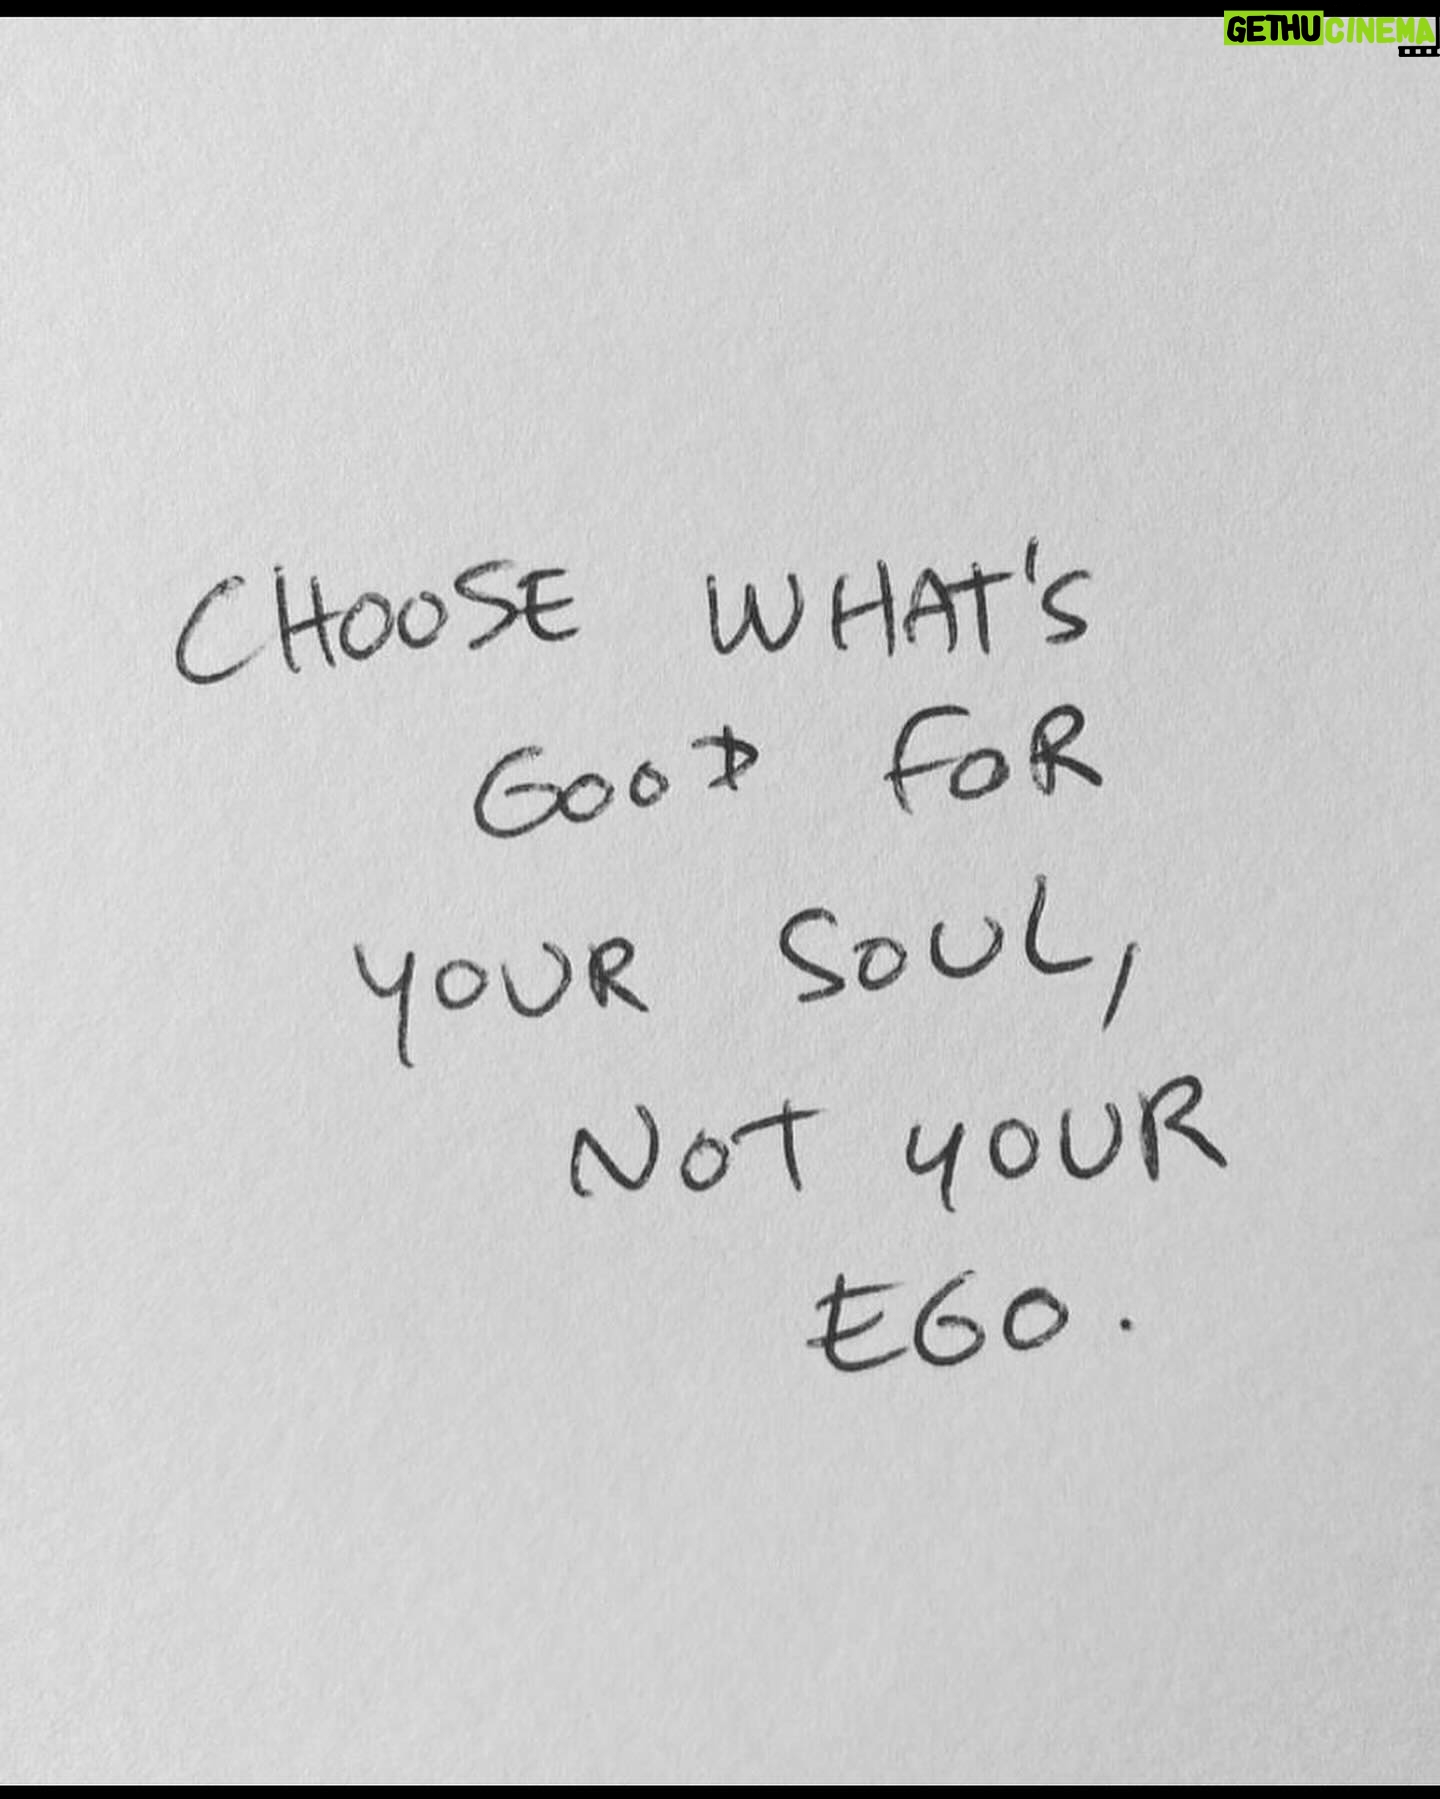 GETHUCINEMA
CHOOSE WHAT'S
GOOD FOR
YOUR SOUL,
NOT YOUR
EGO.